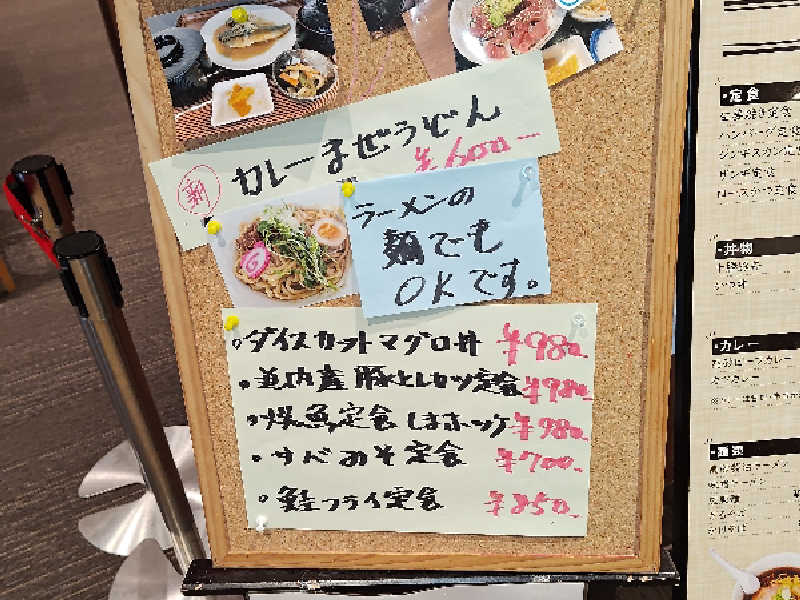 新 カレーまぜうどん
¥600-
ラーメンの
麺でも
OKです。
・ダイスカットマグロ丼 ¥980-
・道内産豚ヒレカツ定食 ¥980-
・焼魚定食 しまホッケ ¥980-
・サバみそ定食 ¥700-
・鮭フライ定食 ¥850-
・定食
ハンバーグ定食
ジンギスカン定食
ロースかつ定食
・丼物
・カレー
カツカレー
・麺類